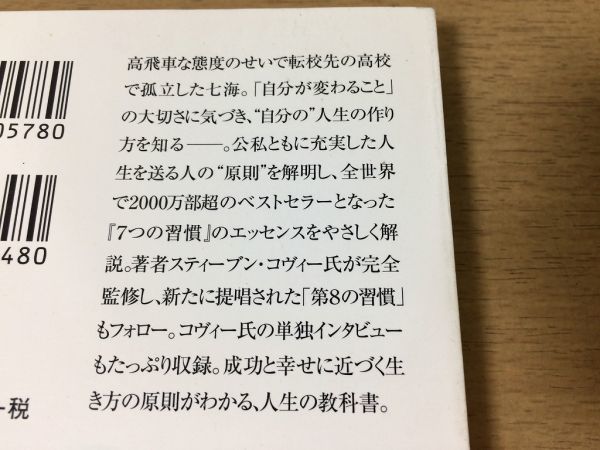 高飛車な態度のせいで転校先の高校
で孤立した七海。「自分が変わること」
の大切さに気づき、“自分の”人生の作り
方を知る——。公私ともに充実した人
生を送る人の“原則”を解明し、全世界
で2000万部超のベストセラーとなった
『7つの習慣』のエッセンスをやさしく解
説。著者スティーブン・コヴィー氏が完全
監修し、新たに提唱された「第8の習慣」
もフォロー。コヴィー氏の単独インタビュー
もたっぷり収録。成功と幸せに近づく生
き方の原則がわかる、人生の教科書。
05780
480
+税